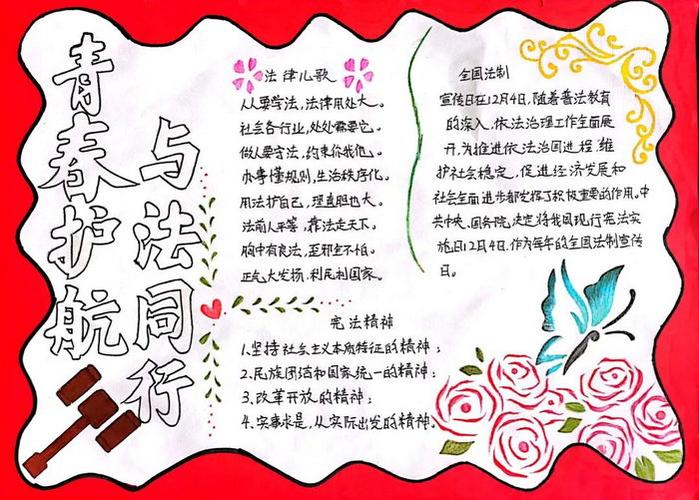 青春护航
与法同行
法律儿歌
人人要学法,法律用处大。
社会各行业,处处需要它。
做人要守法,约束你我他。
办事懂规则,生活秩序化。
用法护自己,理直胆也大。
法前人平等,靠法走天下。
胸中有良法,歪邪全不怕。
正气大发扬,利民利国家。
全国法制
宣传日在12月4日,随着普法教育
的深入,依法治理工作全面展
开,为推进依法治国进程,维
护社会稳定,促进经济发展和
社会全面进步都发挥了积极重要的作用。中
共中央、国务院决定将我国现行宪法实
施日12月4日,作为每年的全国法制宣传
日。
宪法精神
1.坚持社会主义本质特征的精神;
2.民族团结和国家统一的精神;
3.改革开放的精神;
4.实事求是,从实际出发的精神。